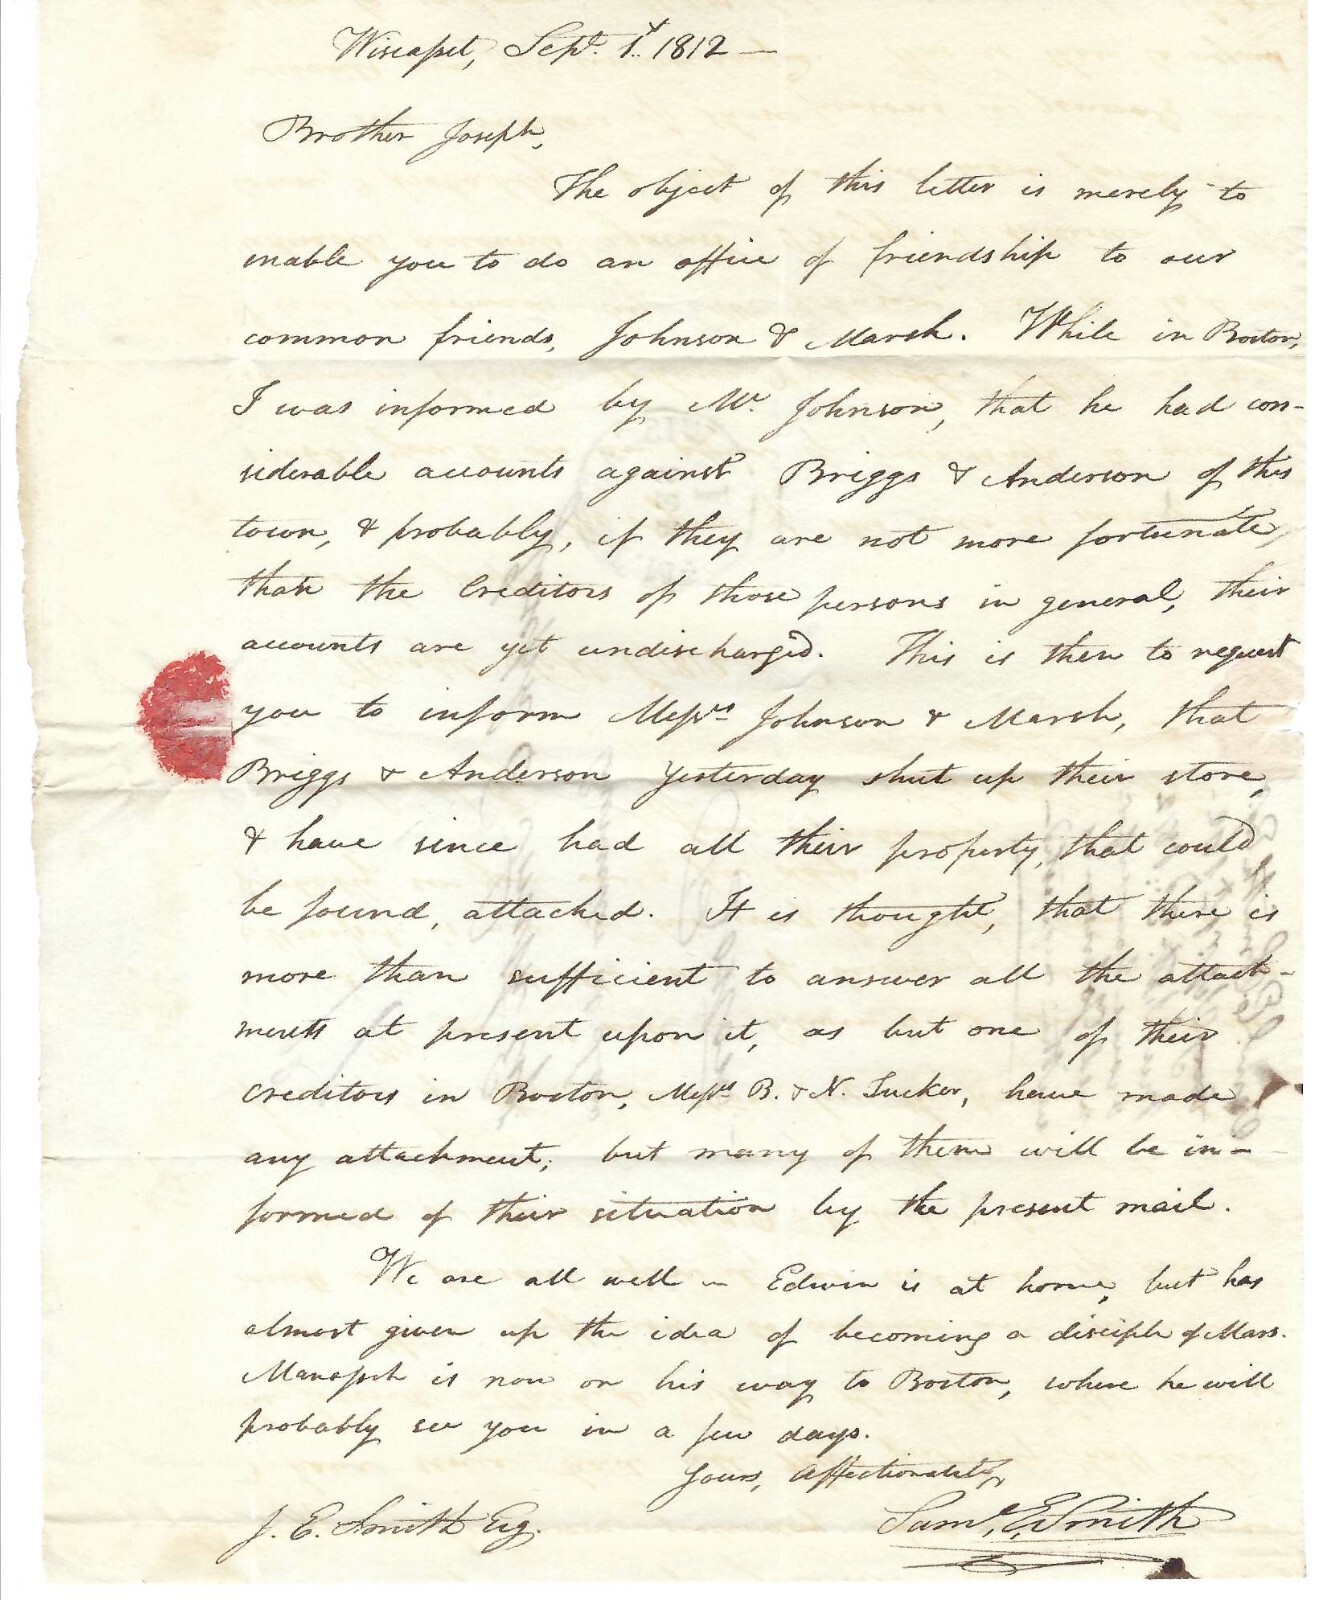 Wiscasset, Sept. 1st. 1812 —
Brother Joseph,
The object of this letter is merely to
enable you to do an office of friendship to our
common friends, Johnson & Marsh. While in Boston,
I was informed by Mr. Johnson, that he had con-
siderable accounts against Briggs & Anderson of this
town, & probably, if they are not more fortunate,
than the Creditors of those persons in general, their
accounts are yet undischarged. This is then to request
you to inform Messrs Johnson & Marsh, that
Briggs & Anderson yesterday shut up their store,
& have since had all their property, that could
be found, attached. It is thought, that there is
more than sufficient to answer all the attach-
ments at present upon it, as but one of their
creditors in Boston, Messrs B. & N. Tucker, have made
any attachment; but many of them will be in-
formed of their situation by the present mail.
We are all well — Edwin is at home, but has
almost given up the idea of becoming a disciple of Mars.
Manasseh is now on his way to Boston, where he will
probably see you in a few days.
Yours, affectionately,
Saml. E. Smith
J. E. Smith Esq.